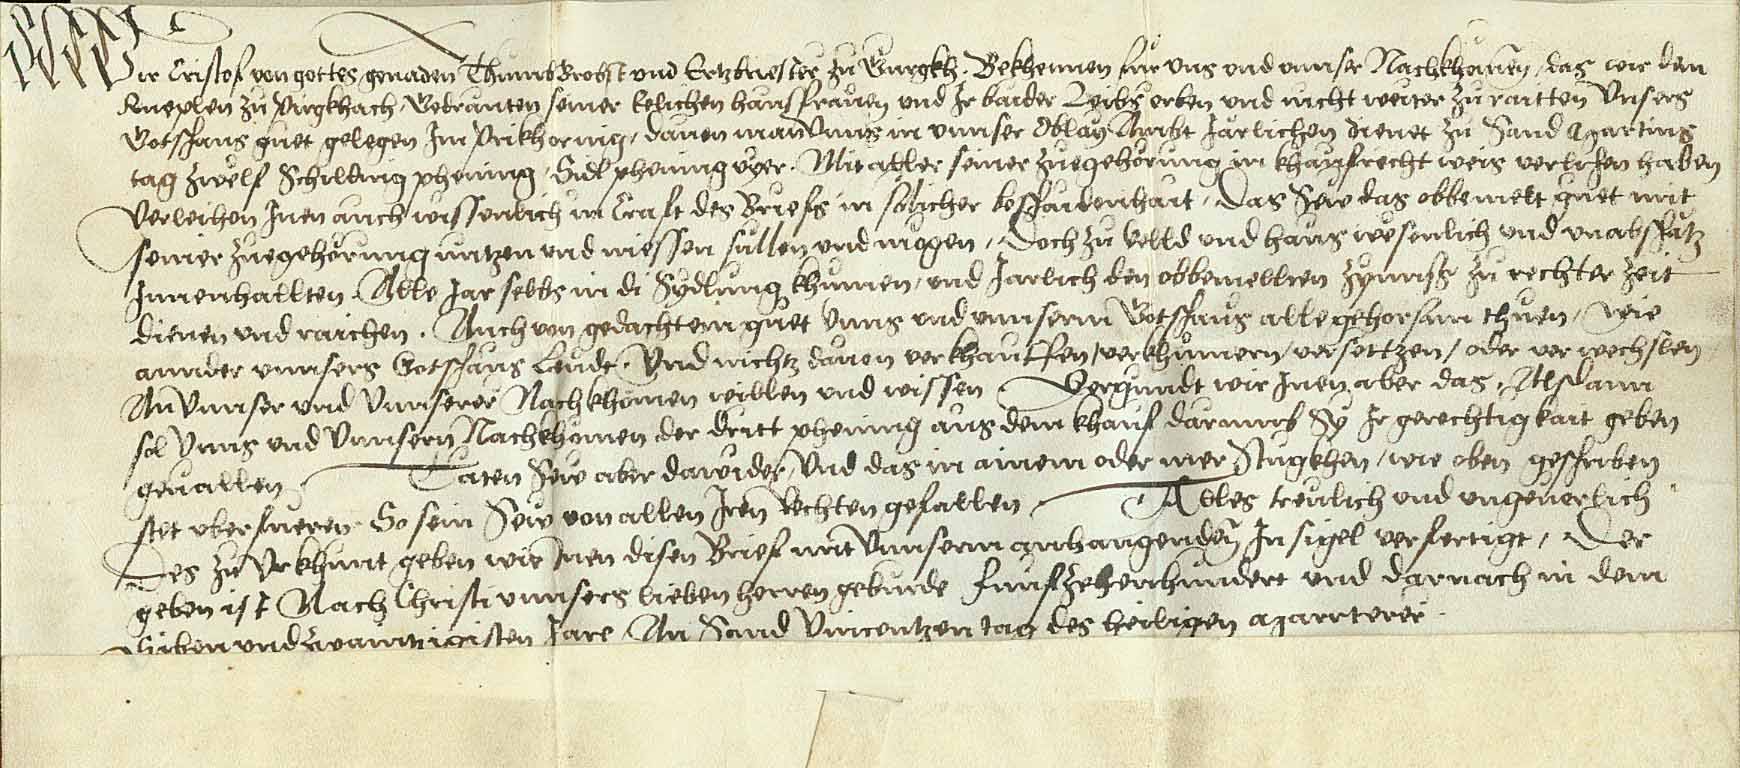 Wir Cristof von gottes genaden Thumb Brobst und Ertzbriester zu Gurgkh. Bekhennen fur uns und unnser Nachkhomen, das wir dem
zu Purgkhach, Gedrauten seiner Eelichen hausfrauen und Ir baider Leibs erben und nicht weiter zu raitten Unsers
Gotshaus guet gelegen Im, dauon man Unns in unnser Oblay Ambt Jarlichen dienet zu Sand Marting
tag zwelf Schilling phening, Sidl phening vier. Mit aller seiner zuegehorung in khaufrecht weis verlihen haben
Verleihen Inen auch wissenlich in Craft des Briefs in solicher beschaidenhait, Das Sew das obbemelt guet mit
seiner zuegehorung nutzen und niessen sullen und mogen, Doch zu velld und haus wesenlich und unabschatz
Innenhallten. Alle Jar selbs in di Sydlung khumen, und Jarlich den obbemellten Zynns zu rechter zeit
dienen und raichen. Auch von gedachtem guet Unns und unnserm Gotshaus alle gehorsam thuen, wie
annder unnsers Gotshaus Leudt. Und nichtz dauon verkhauffen, verkhumern, versettzen, oder verwechslen,
An Unnser und Unnserer Nachkhomen willen und wissen Vergundt wir Inen aber das, Alsdann
sol Unns und Unnsern Nachkhomen der dritt phening aus dem khauf darumb Sy Ir gerechtigkait geben
geuallen Taten Sew aber dawider, Und das in ainem oder mer Stugkhen, wie oben geschriben
stet uberfueren. So sein Sew von allen Iren Rechten gefallen Alles treulich und ungeuerlich
Des zu Urkhunt geben wir Inen disen Brief mit Unnserm anhangenden Insigel verfertigt, Der
geben ist Nach Christi unnsers lieben herren geburde Funfzehenhundert und darnach in dem
Siben und zwaintzigisten Jare, An Sand Vincentzen tag des heiligen Martterer.